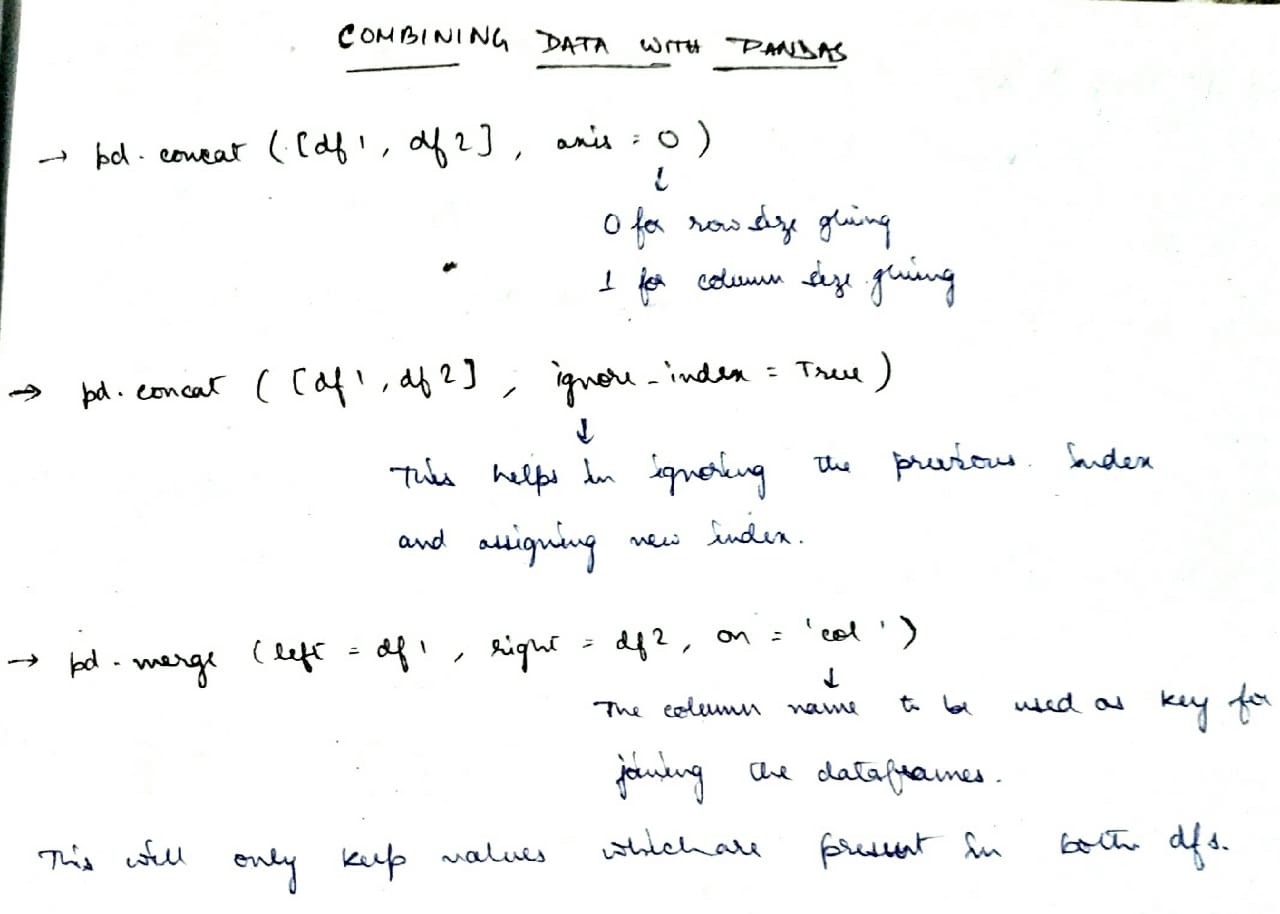 COMBINING DATA WITH PANDAS
→ pd.concat ([df1, df2], axis = 0)
↓
0 for row size gluing
1 for column size gluing
→ pd.concat ([df1, df2], ignore_index = True)
↓
This helps in ignoring the previous index
and assigning new index.
→ pd.merge (left = df1, right = df2, on = 'col')
↓
The column name to be used as key for
joining the dataframes.
This will only keep values which are present in both dfs.